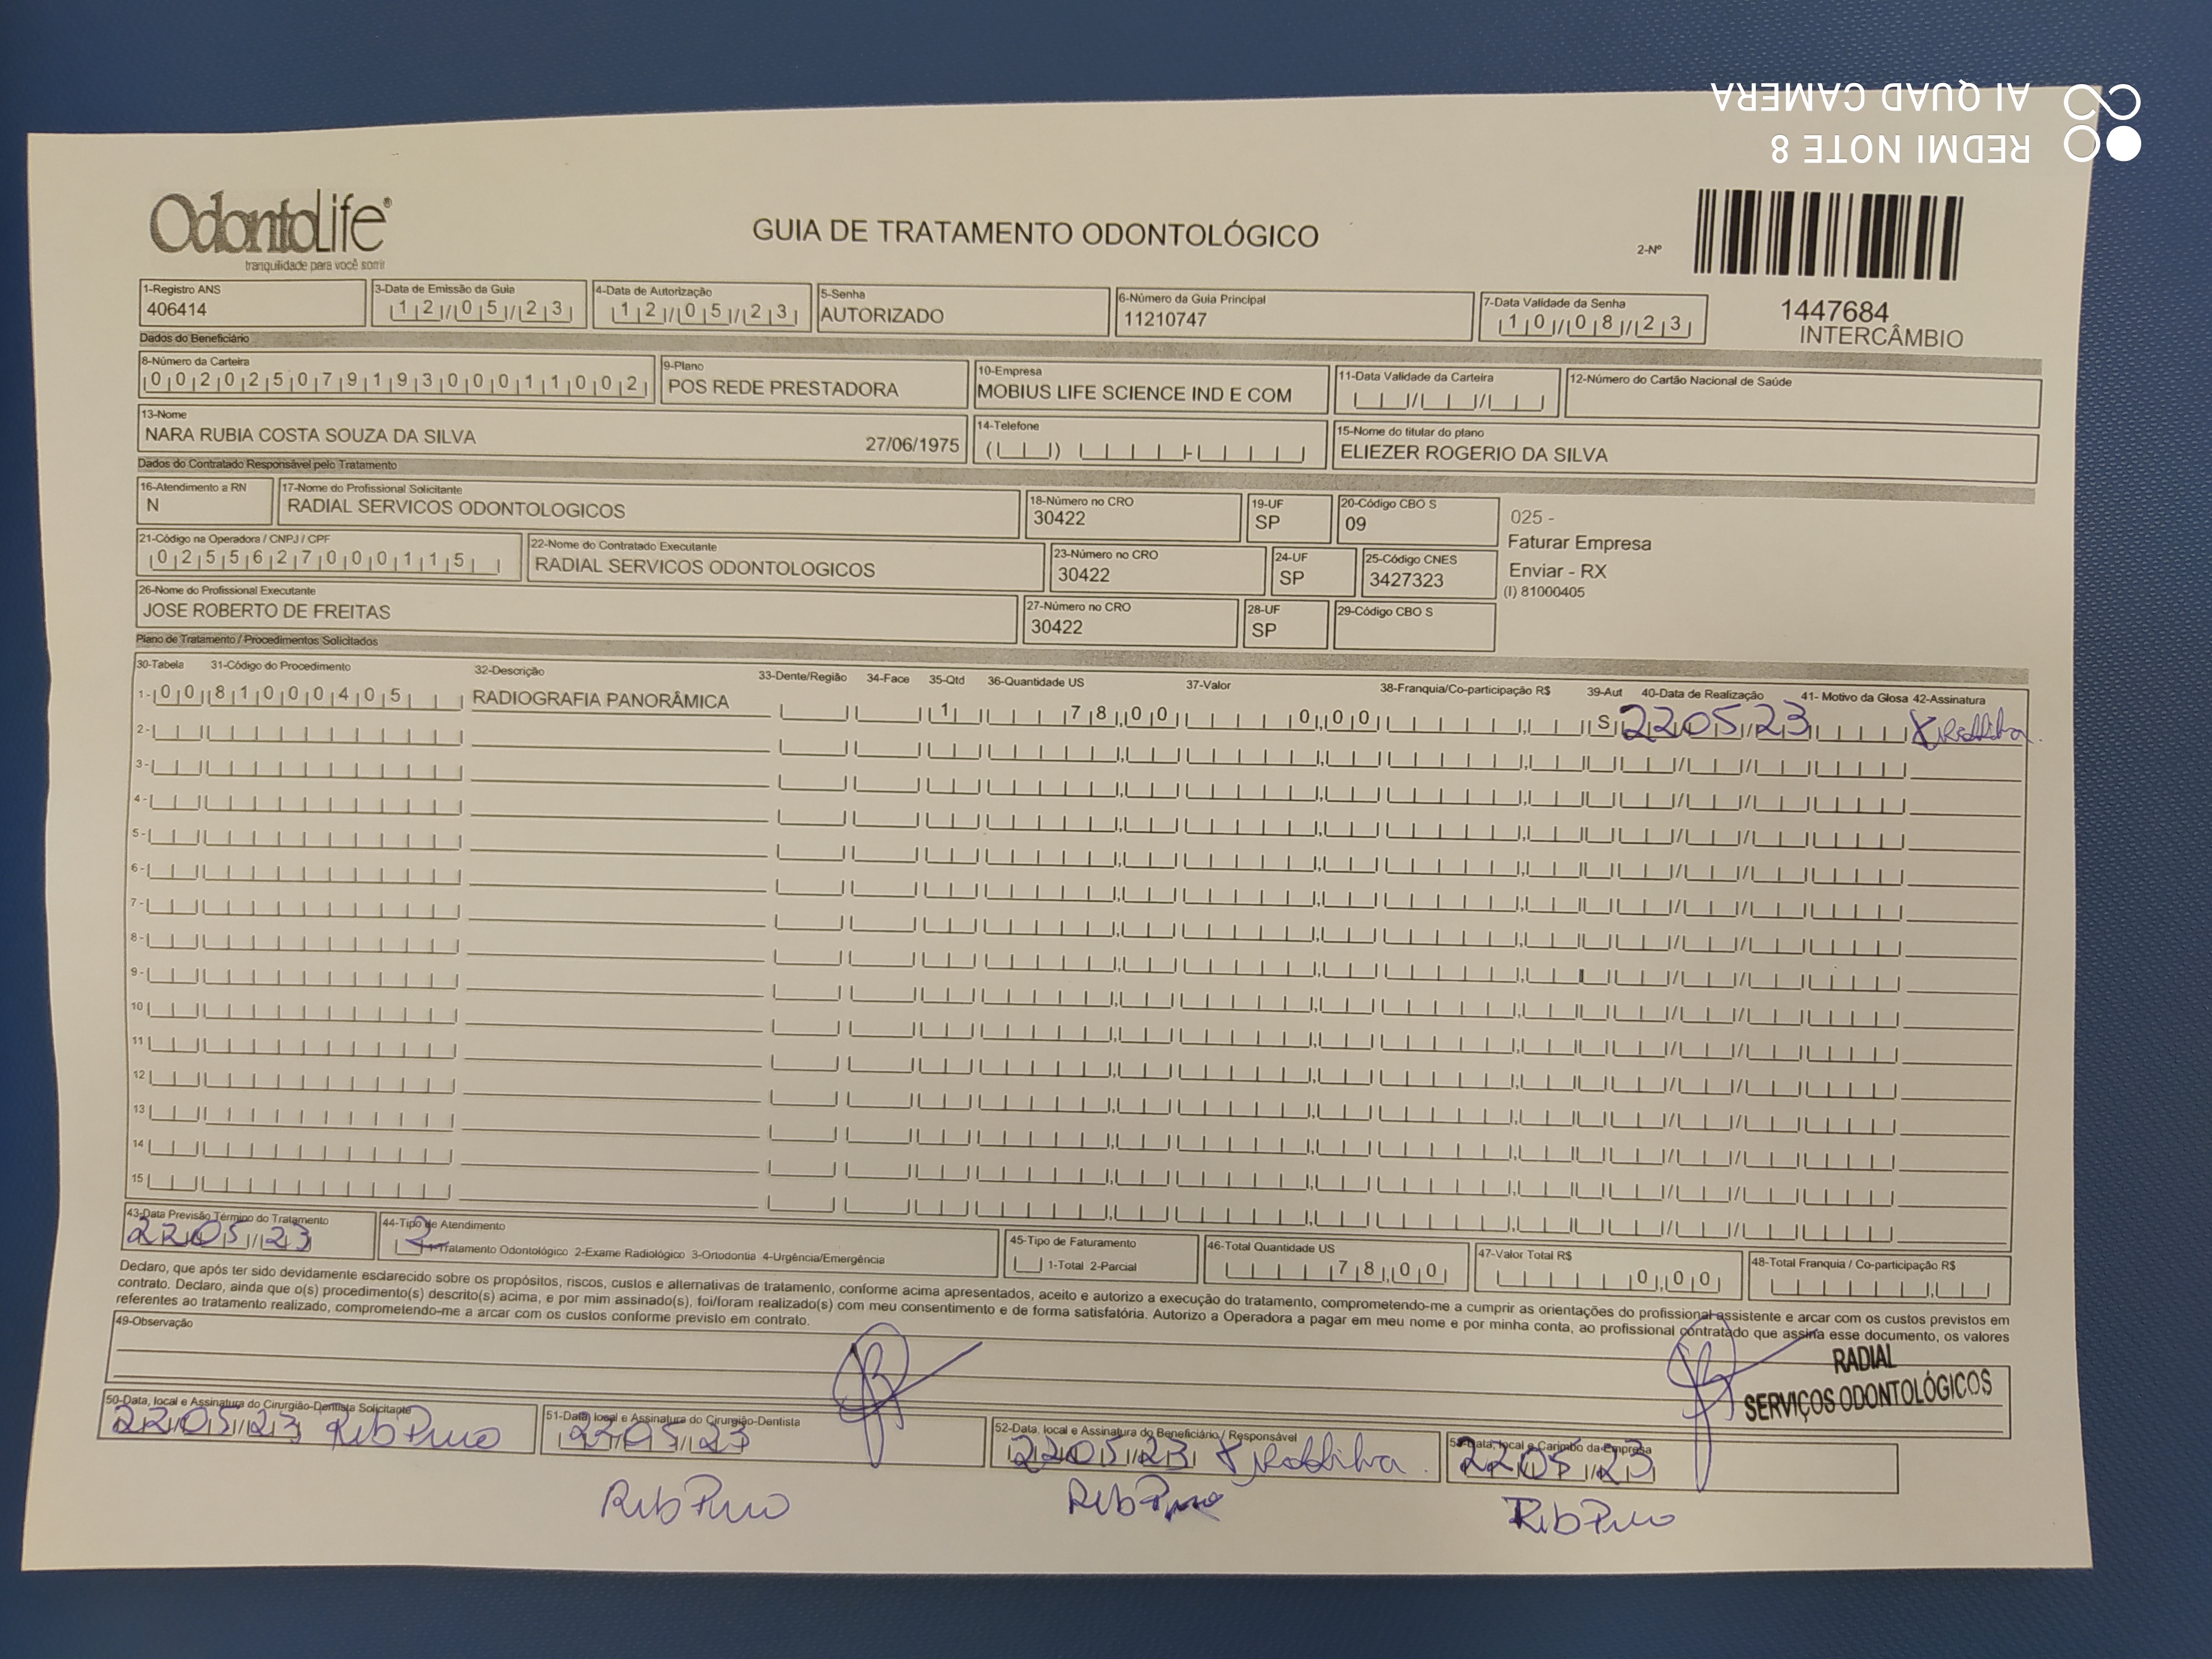 REDMI NOTE 8
AI QUAD CAMERA
OdontoLife®
tranquilidade para você sorrir
GUIA DE TRATAMENTO ODONTOLÓGICO
2-Nº
1447684
INTERCÂMBIO
1-Registro ANS
406414
3-Data de Emissão da Guia
12/05/23
4-Data de Autorização
12/05/23
5-Senha
AUTORIZADO
6-Número da Guia Principal
11210747
7-Data Validade da Senha
10/08/23
Dados do Beneficiário
8-Número da Carteira
00202507919300011002
9-Plano
POS REDE PRESTADORA
10-Empresa
MOBIUS LIFE SCIENCE IND E COM
11-Data Validade da Carteira
12-Número do Cartão Nacional de Saúde
13-Nome
NARA RUBIA COSTA SOUZA DA SILVA 27/06/1975
14-Telefone
15-Nome do titular do plano
ELIEZER ROGERIO DA SILVA
Dados do Contratado Responsável pelo Tratamento
16-Atendimento a RN
N
17-Nome do Profissional Solicitante
RADIAL SERVICOS ODONTOLOGICOS
18-Número no CRO
30422
19-UF
SP
20-Código CBO S
09
025 -
Faturar Empresa
Enviar - RX
(I) 81000405
21-Código na Operadora / CNPJ / CPF
02556270000115
22-Nome do Contratado Executante
RADIAL SERVICOS ODONTOLOGICOS
23-Número no CRO
30422
24-UF
SP
25-Código CNES
3427323
26-Nome do Profissional Executante
JOSE ROBERTO DE FREITAS
27-Número no CRO
30422
28-UF
SP
29-Código CBO S
Plano de Tratamento / Procedimentos Solicitados
30-Tabela 31-Código do Procedimento 32-Descrição 33-Dente/Região 34-Face 35-Qtd 36-Quantidade US 37-Valor 38-Franquia/Co-participação R$ 39-Aut 40-Data de Realização 41- Motivo da Glosa 42-Assinatura
1- 00 81000405 RADIOGRAFIA PANORÂMICA 1 78,00 0,00 S 22/05/23
2-
3-
4-
5-
6-
7-
8-
9-
10
11
12
13
14
15
43-Data Previsão Término do Tratamento
22/05/23
44-Tipo de Atendimento
2 1-Tratamento Odontológico 2-Exame Radiológico 3-Ortodontia 4-Urgência/Emergência
45-Tipo de Faturamento
1-Total 2-Parcial
46-Total Quantidade US
78,00
47-Valor Total R$
0,00
48-Total Franquia / Co-participação R$
Declaro, que após ter sido devidamente esclarecido sobre os propósitos, riscos, custos e alternativas de tratamento, conforme acima apresentados, aceito e autorizo a execução do tratamento, comprometendo-me a cumprir as orientações do profissional assistente e arcar com os custos previstos em
contrato. Declaro, ainda que o(s) procedimento(s) descrito(s) acima, e por mim assinado(s), foi/foram realizado(s) com meu consentimento e de forma satisfatória. Autorizo a Operadora a pagar em meu nome e por minha conta, ao profissional contratado que assina esse documento, os valores
referentes ao tratamento realizado, comprometendo-me a arcar com os custos conforme previsto em contrato.
49-Observação
RADIAL
SERVIÇOS ODONTOLÓGICOS
50-Data, local e Assinatura do Cirurgião-Dentista Solicitante
22/05/23 Rib Preto
51-Data, local e Assinatura do Cirurgião-Dentista
22/05/23
Rib Preto
52-Data, local e Assinatura do Beneficiário / Responsável
22/05/23
Rib Preto
53-Data, local e Carimbo da Empresa
22/05/23
Rib Preto